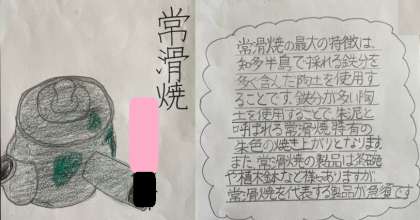 常滑焼
常滑焼の最大の特徴は、
知多半島で採れる鉄分を
多く含んだ陶土を使用す
ることです。鉄分が多い陶
土を使用することで、朱泥と
呼ばれる常滑焼特有の
朱色の焼き上がりとなります。
また、常滑焼の製品は茶碗
や植木鉢など様々ありますが、
常滑焼を代表する製品が急須です